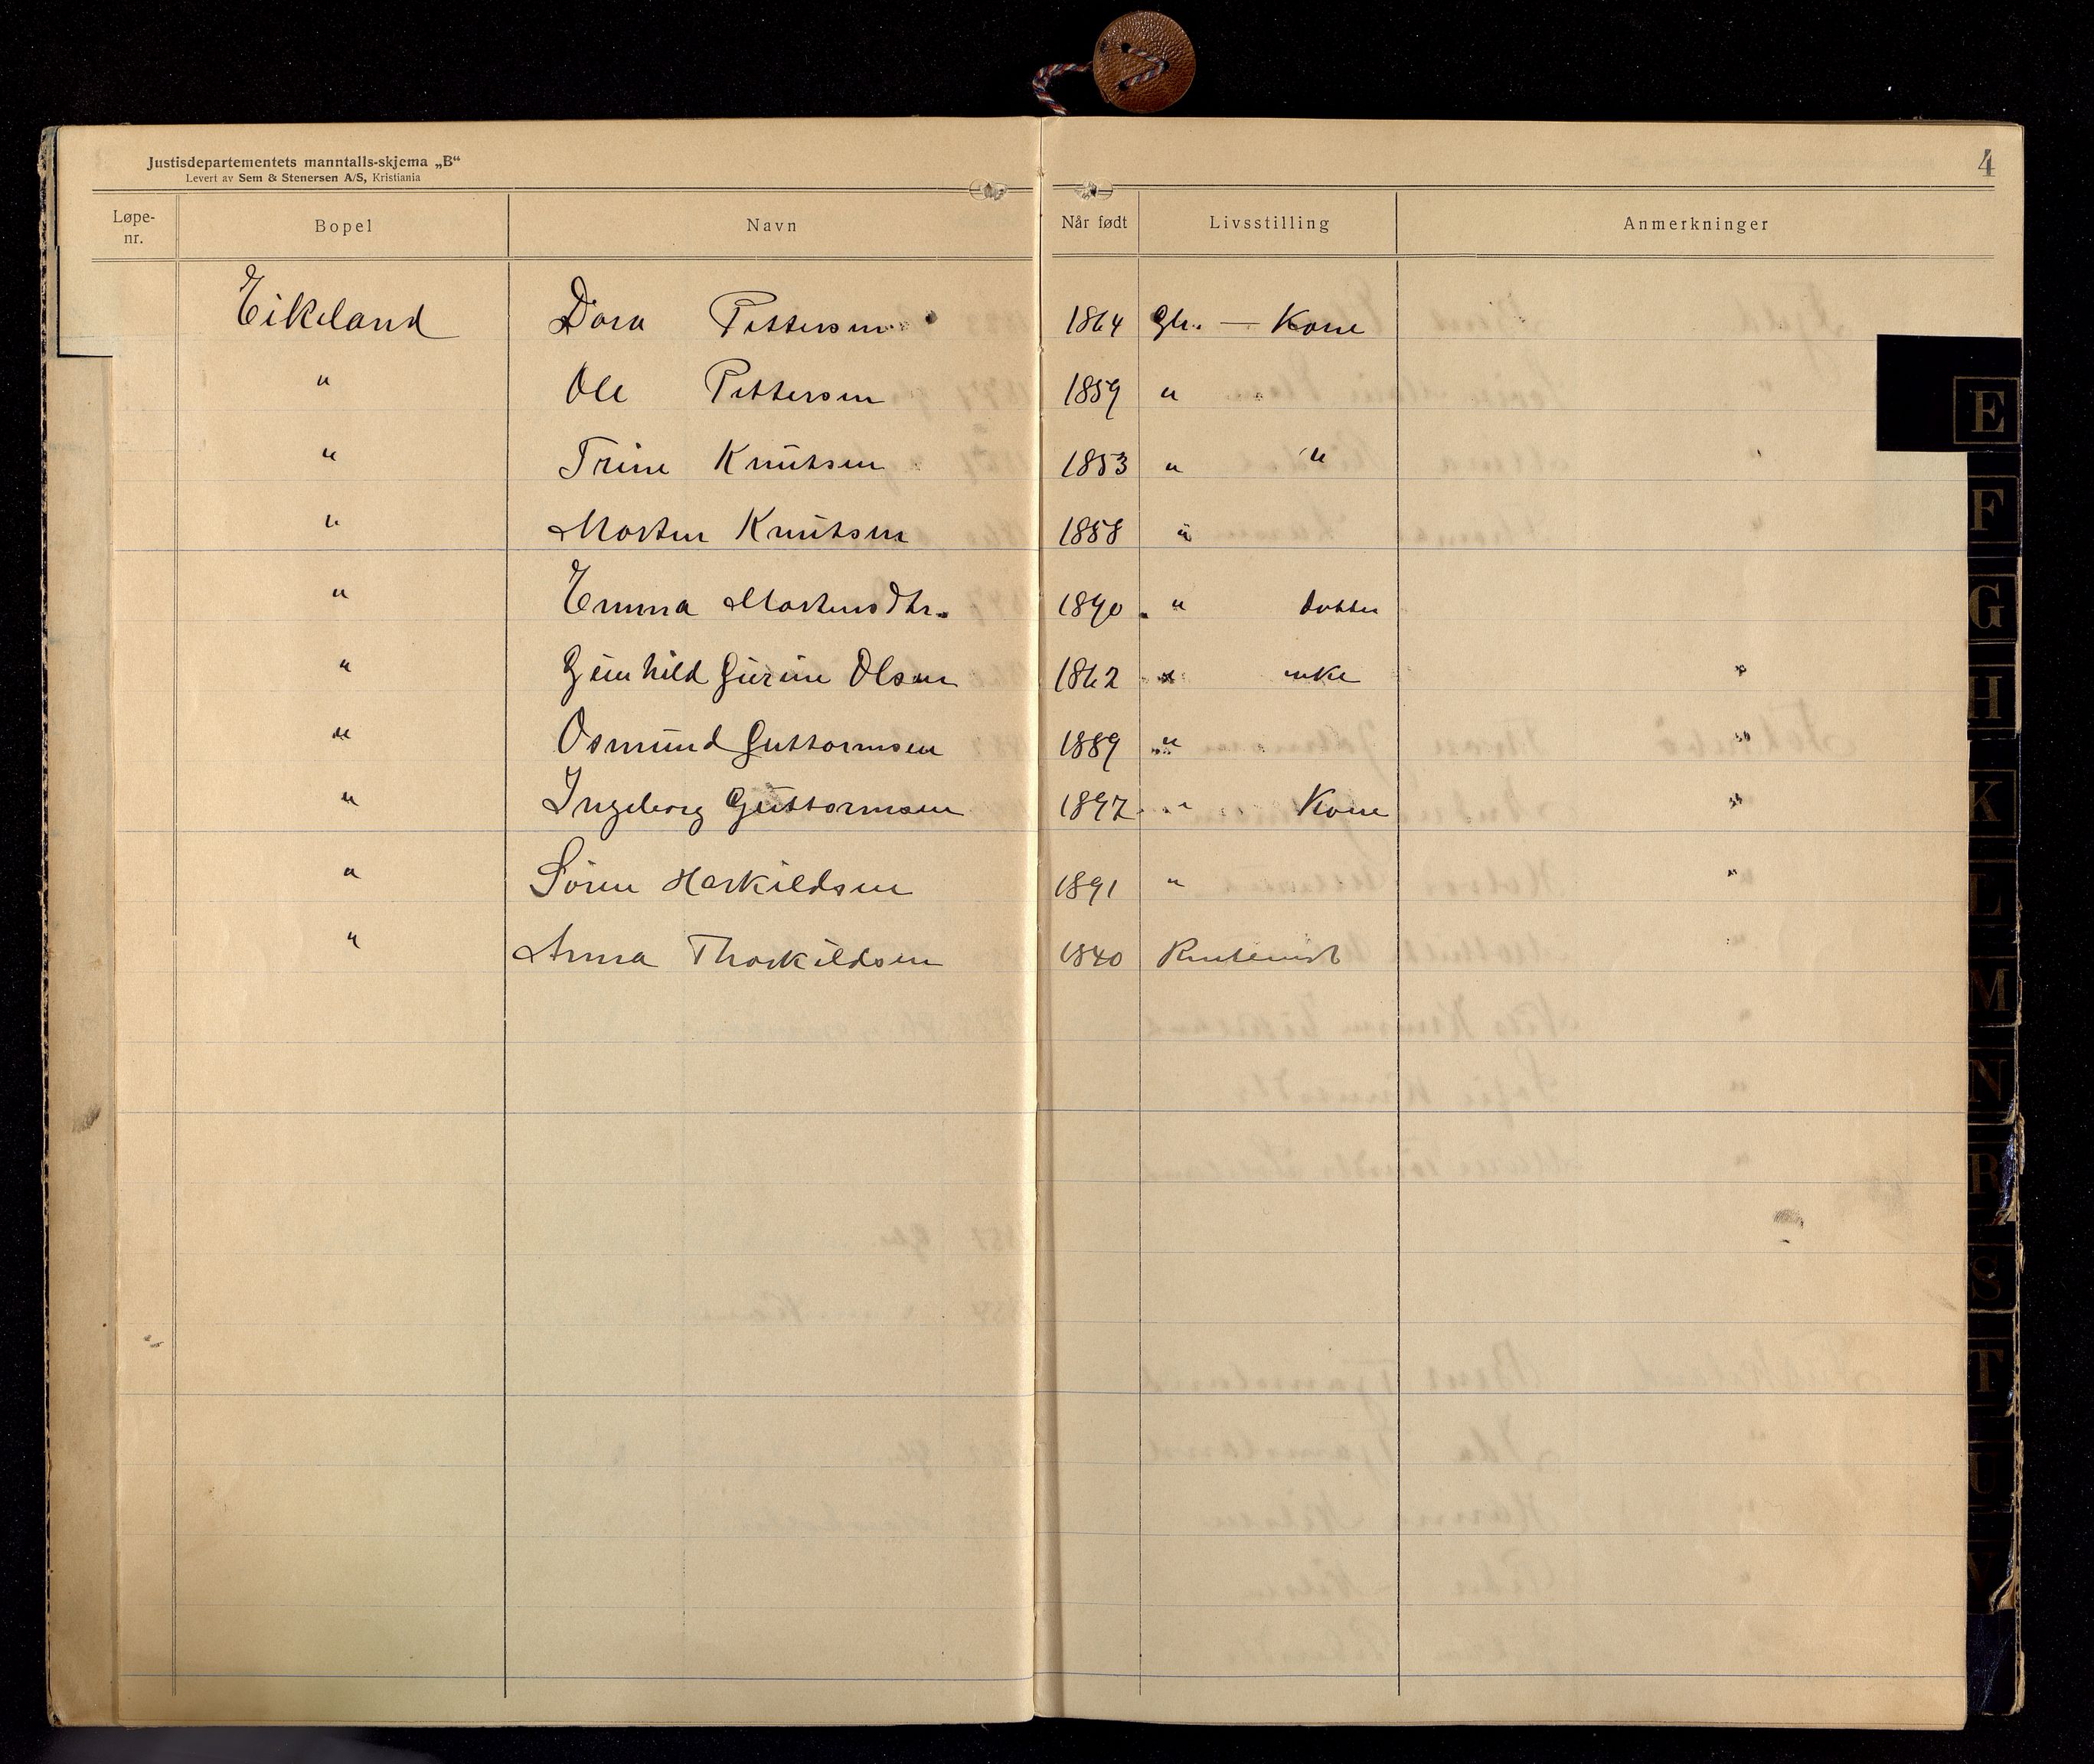 Justisdepartementets manntalls-skjema „B“
Levert av Sem & Stenersen A/S, Kristiania
4
Løpe-nr. Bopel Navn Når født Livsstilling Anmerkninger
Eikeland Dora Pettersen 1864 Gbr. — Kone
" Ole Pettersen 1859 "
" Trine Knutsen 1853 " "
" Morten Knutsen 1858 "
" Emma Mortensdtr. 1890 " dotter
" Gunhild Gurine Olsen 1862 " enke "
" Osmund Guttormsen 1889 " "
" Ingeborg Guttormsen 1897 " Kone "
" Sören Herkildsen 1891 " "
" Anna Thorkildsen 1840
E
F
G
H
K
L
M
N
R
S
T
U
V